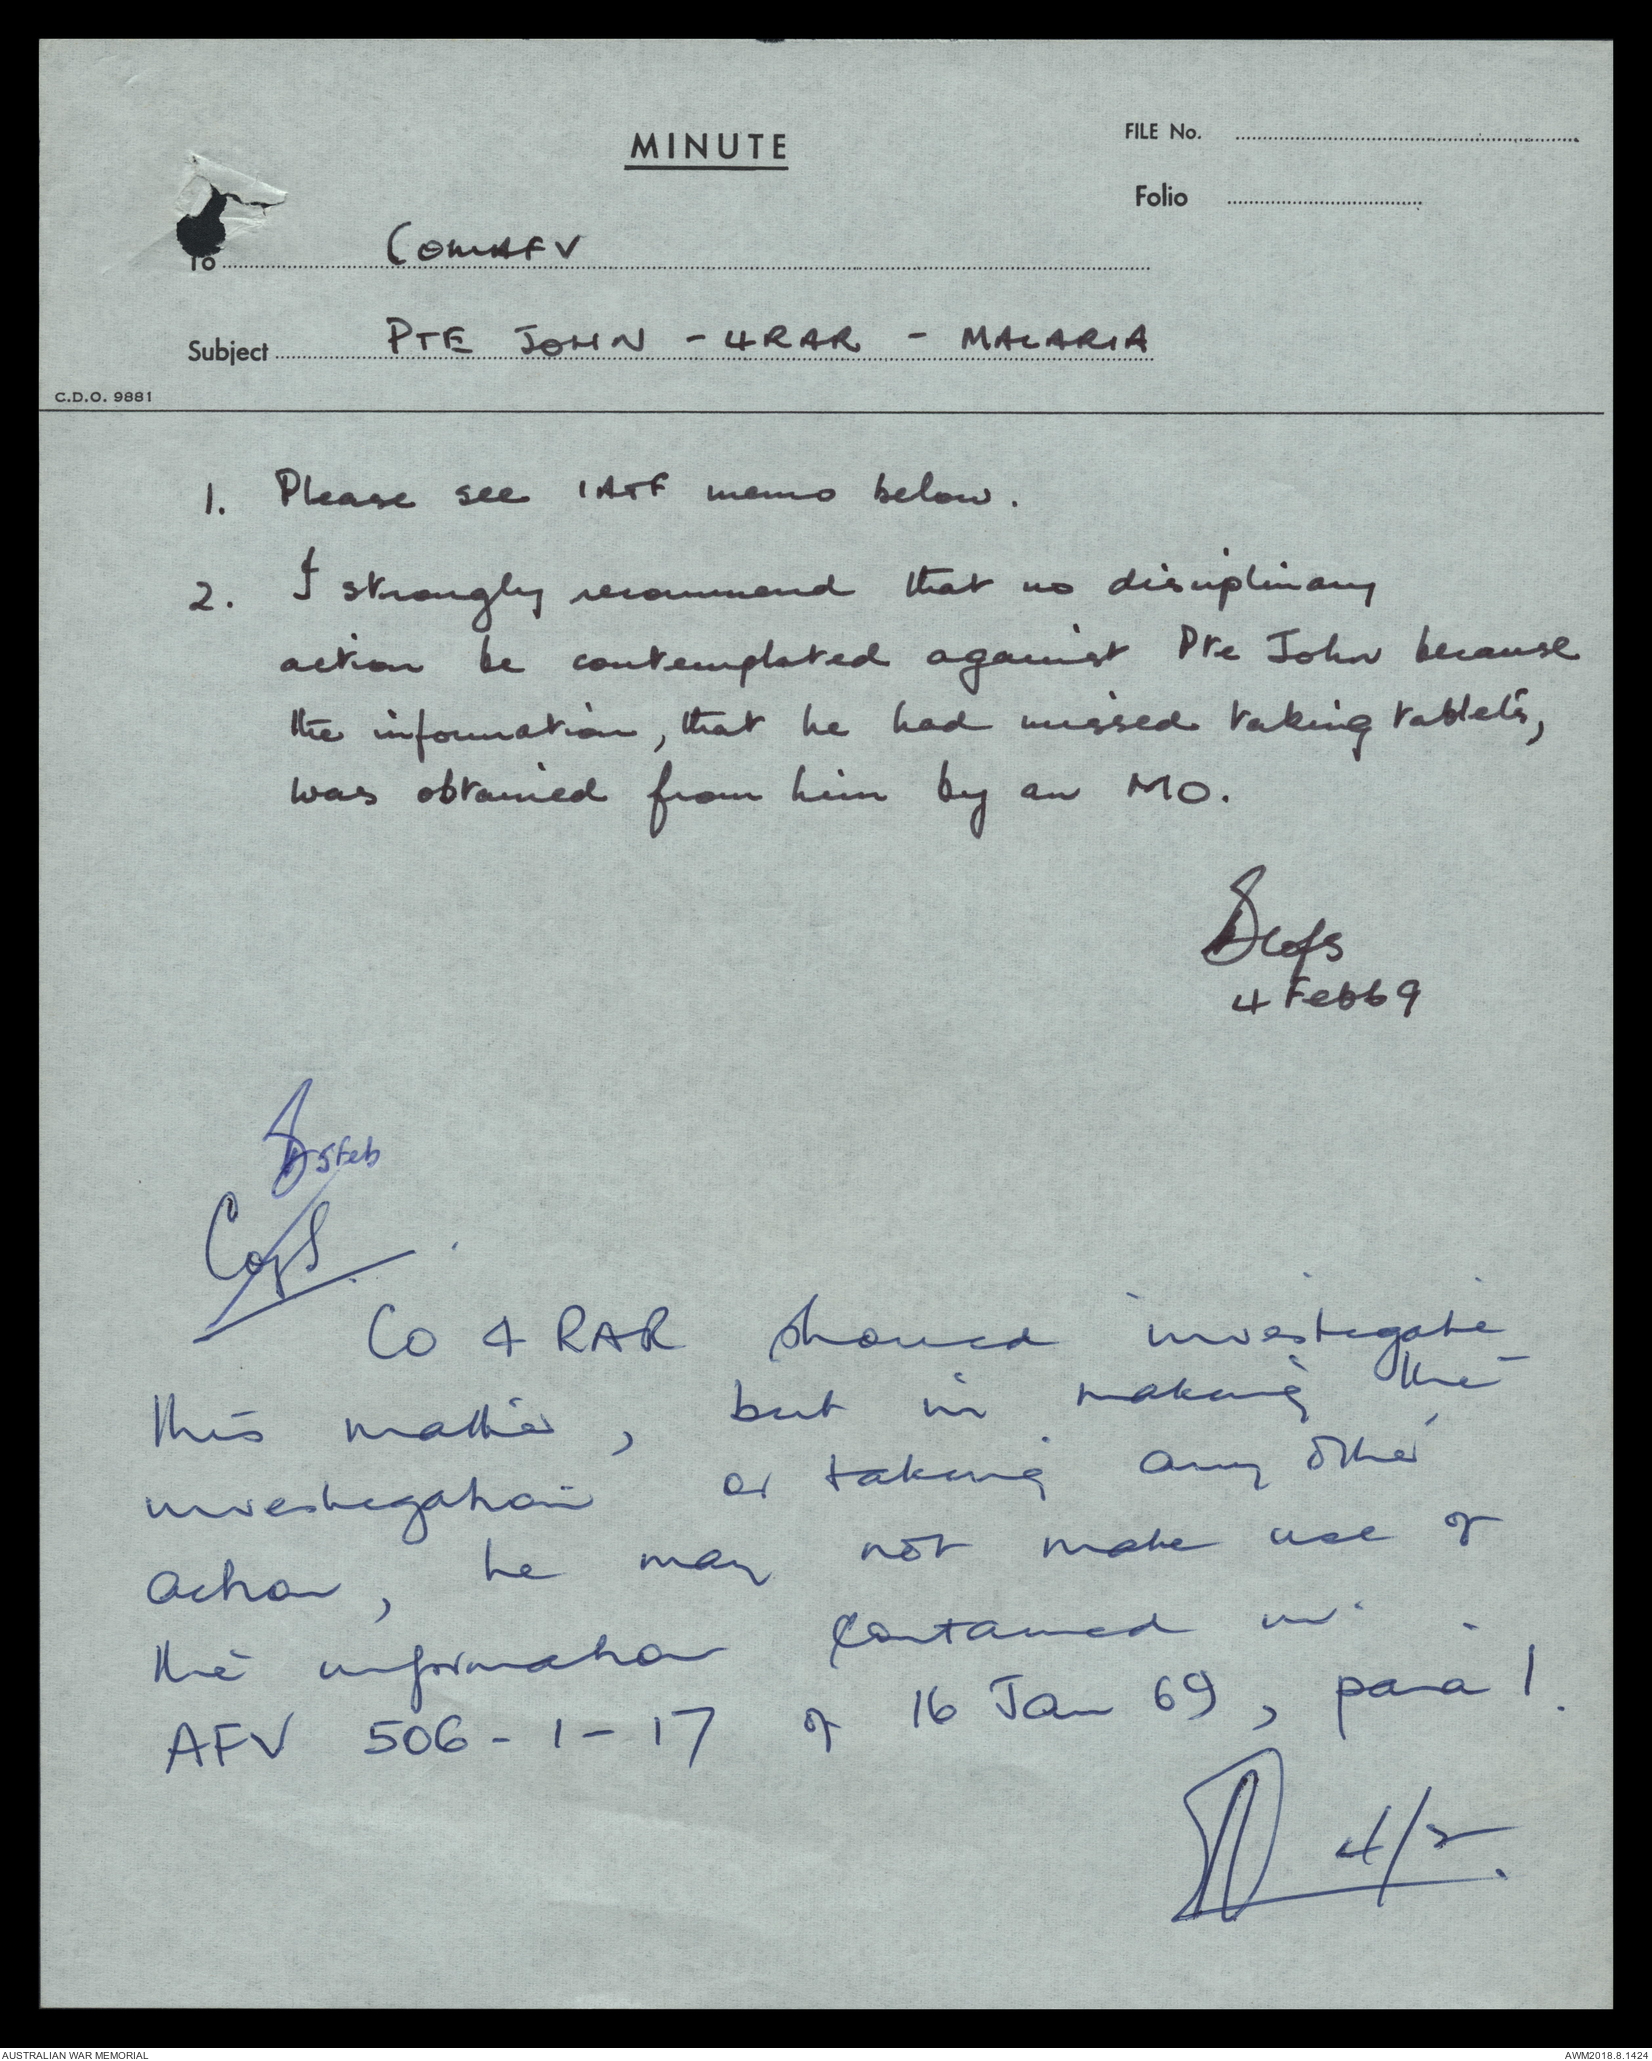 MINUTE
FILE No.
Folio
To COMAFV
Subject PTE JOHN - 4RAR - MALARIA
C.D.O. 9881
1. Please see 1ATF memo below.
2. I strongly recommend that no disciplinary
action be contemplated against Pte John because
the information, that he had missed taking tablets,
was obtained from him by an MO.
CofS
4 Feb 69
5 Feb
CofS
CO 4 RAR should investigate
this matter, but in making the
investigation or taking any other
action, he may not make use of
the information contained in
AFV 506-1-17 of 16 Jan 69, para 1.
4/2
AUSTRALIAN WAR MEMORIAL
AWM2018.8.1424